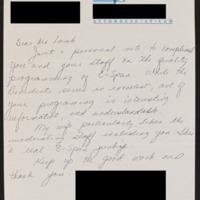 Dear Mr Lamb
Just a personal note to compliment
you and your staff on the quality
programming of C-Span. While the
President's series is constant, all of
your programming is interesting
informative, and understandable.
My wife particularly likes the
moderating staff including you. She's
a real C-Span
Keep up the good work and
thank you